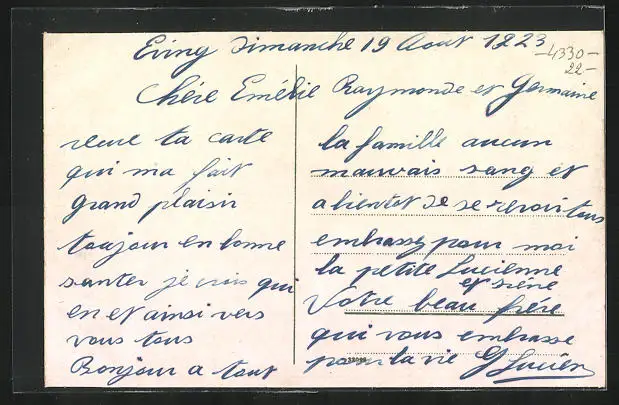 Eving Dimanche 19 Aout 1923
4330-
22-
Chére Emélie Raymonde et Germaine
recue ta carte
qui ma fait
grand plaisir
toujour en bonne
santer je crois qui
en et ainsi vers
vous tous
Bonjour a tout
la famille aucun
mauvais sang et
a bientot de se revoir tous
embrassz pour moi
la petite Lucienne
et
Votre beau frére
qui vous embrasse
pour la vie G Lucien